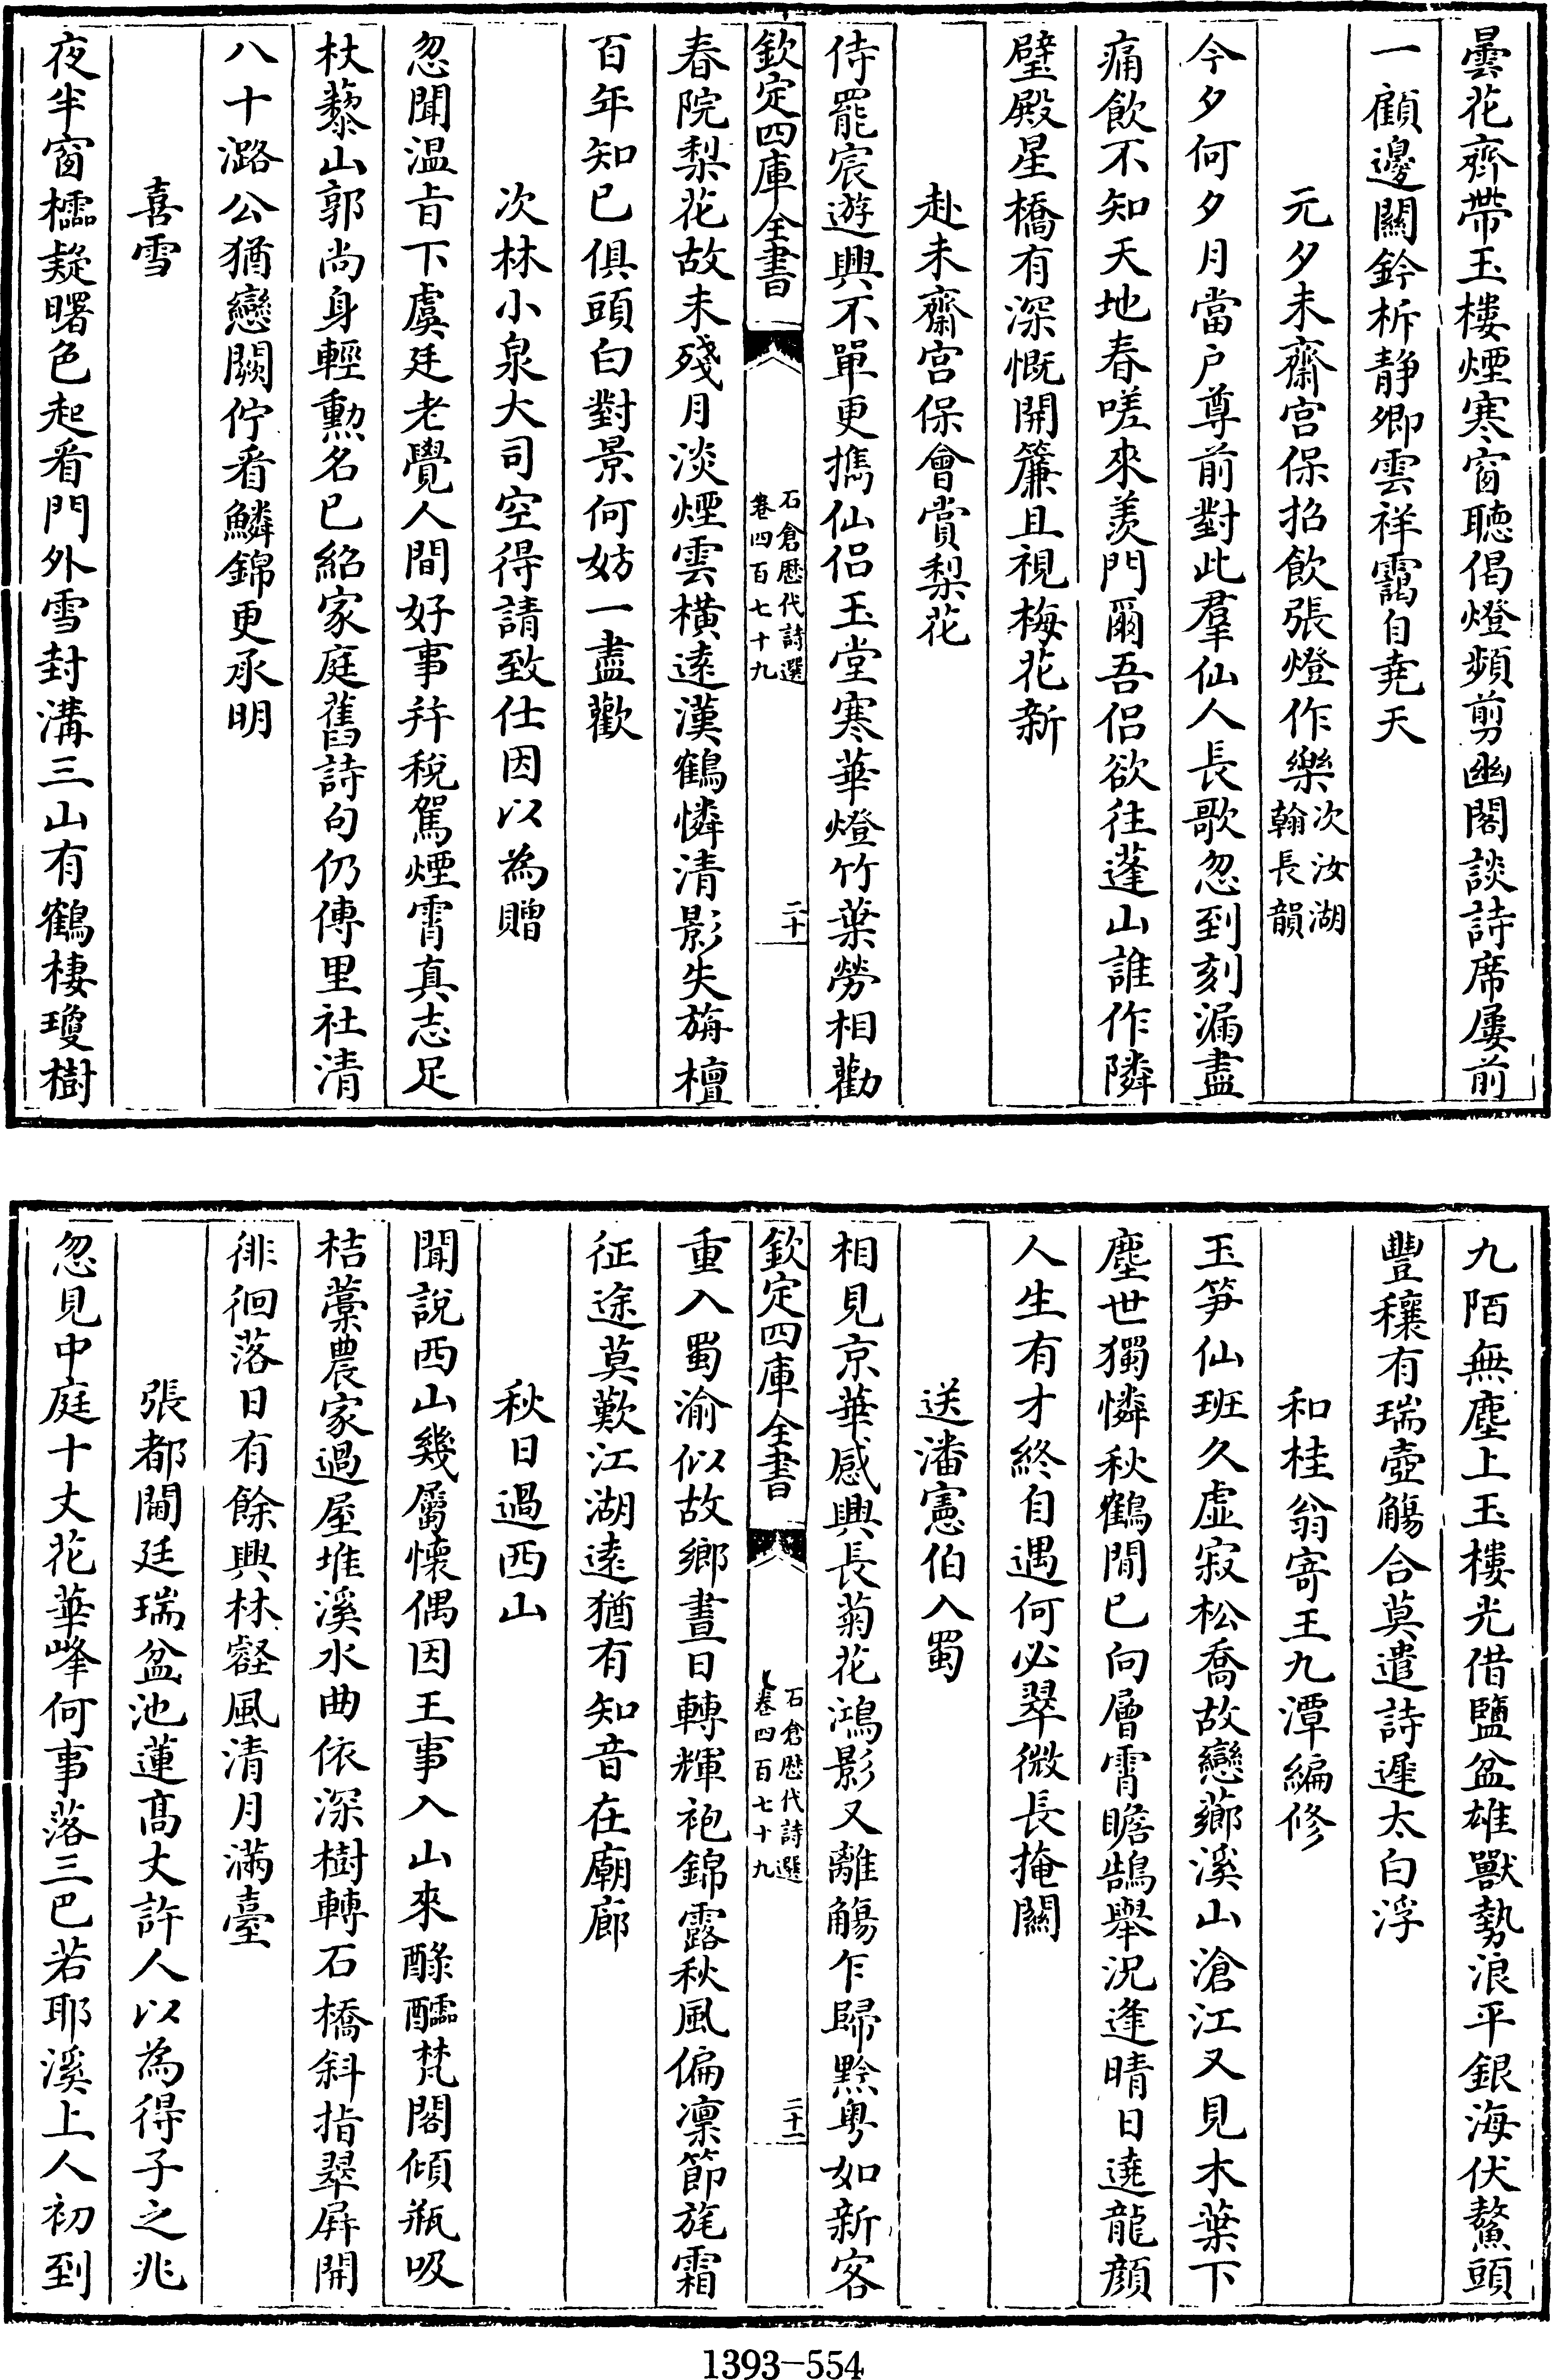 曇花齊帶玉樓煙寒窗聽偈燈頻剪幽閣談詩席屢前
一顧邊關鈴柝静卿雲祥靄自尭天
元夕未齋宫保招飲張燈作樂次汝湖翰長韻
今夕何夕月當户尊前對此羣仙人長歌忽到刻漏盡
痛飲不知天地春嗟來羡門爾吾侣欲往蓬山誰作隣
璧殿星橋有深慨開簾且視梅花新
赴未齋宫保會賞梨花
侍罷宸遊興不單更携仙侣玉堂寒華燈竹葉勞相勸
欽定四庫全書
石倉歴代詩選
卷四百七十九
二十
春院梨花故未殘月淡煙雲横逺漢鶴憐清影失旃檀
百年知已俱頭白對景何妨一盡歡
次林小泉大司空得請致仕因以為贈
忽聞温㫖下虞廷老覺人間好事并稅駕煙霄真志足
杖藜山郭尚身輕勲名已紹家庭舊詩句仍傳里社清
八十潞公猶戀闕佇看鱗錦更承明
喜雪
夜半窗櫺疑曙色起看門外雪封溝三山有鶴棲瓊樹
九陌無塵上玉樓光借鹽盆雄獸勢浪平銀海伏鰲頭
豐穰有瑞壺觴合莫遣詩遲太白浮
和桂翁寄王九潭編修
玉笋仙班久虚寂松喬故戀薌溪山滄江又見木葉下
塵世獨憐秋鶴閒已向層霄瞻鵠舉況逢晴日遶龍顔
人生有才終自遇何必翠微長掩關
送潘憲伯入蜀
相見京華感興長菊花鴻影又離觴乍歸黔粤如新客
欽定四庫全書
石倉歴代詩選
卷四百七十九
二十一
重入蜀渝似故鄉晝日轉輝袍錦露秋風偏凛節旄霜
征途莫歎江湖逺猶有知音在廟廊
秋日過西山
聞說西山幾屬懷偶因王事入山來醁醽梵閣傾瓶吸
桔槹農家過屋堆溪水曲依深樹轉石橋斜指翠屏開
徘徊落日有餘興林壑風清月滿臺
張都閫廷瑞盆池蓮髙丈許人以為得子之兆
忽見中庭十丈花華峰何事落三巴若耶溪上人初到
1393—554